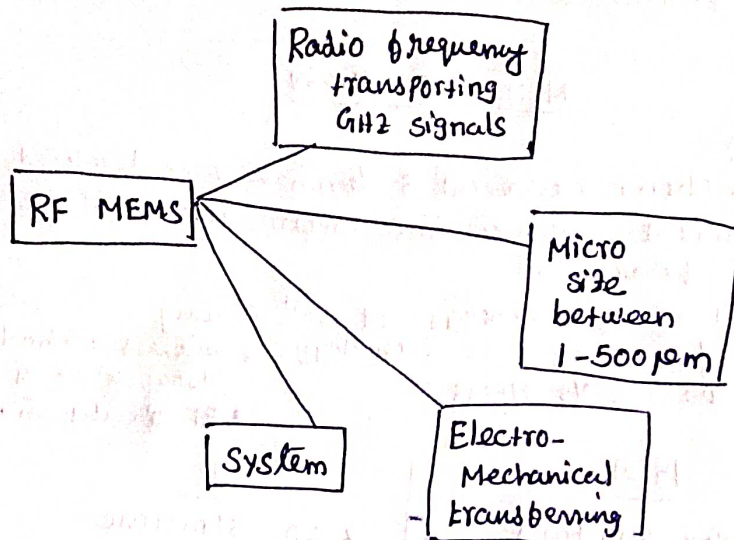 Radio frequency
transporting
GHZ signals
RF MEMS
Micro
size
between
1-500 μm
System
Electro-
Mechanical
transferring